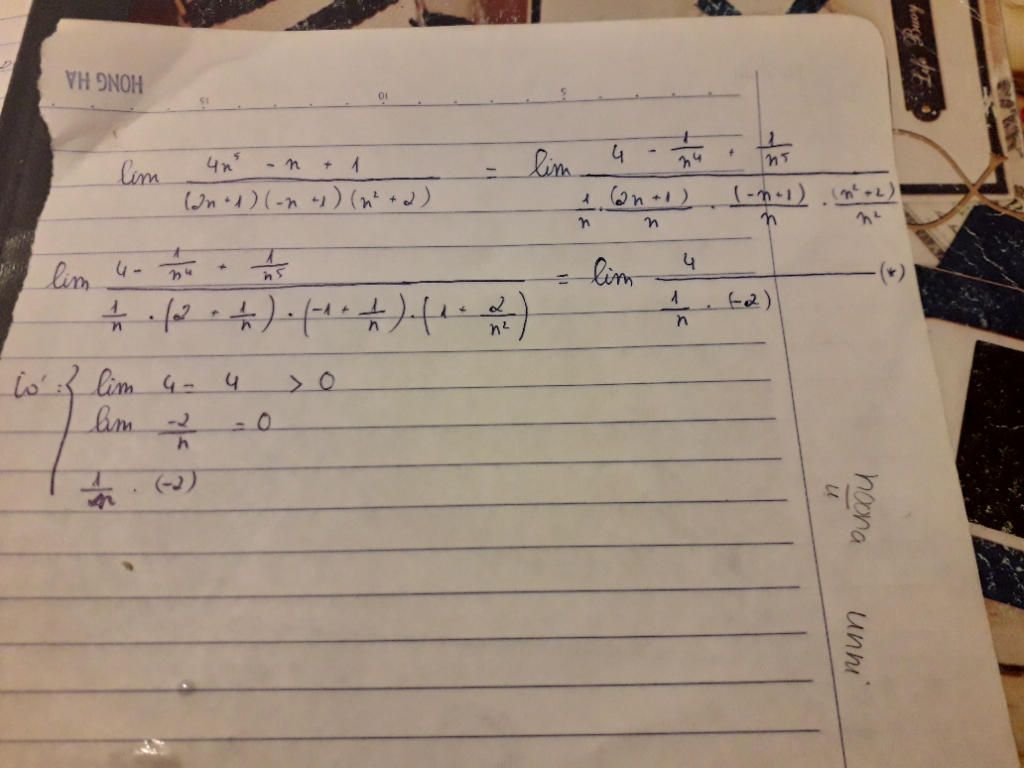 HONG HA
15 10 5
lim (4n⁵ - n + 1) / ((2n+1)(-n+1)(n²+2)) = lim (4 - 1/n⁴ + 1/n⁵) / (1/n · (2n+1)/n · (-n+1)/n · (n²+2)/n²)
lim (4 - 1/n⁴ + 1/n⁵) / (1/n · (2 + 1/n) · (-1 + 1/n) · (1 + 2/n²)) = lim 4 / (1/n · (-2)) (*)
Có : { lim 4 = 4 > 0
lim -2/n = 0
1/n · (-2)
hoana unni
u